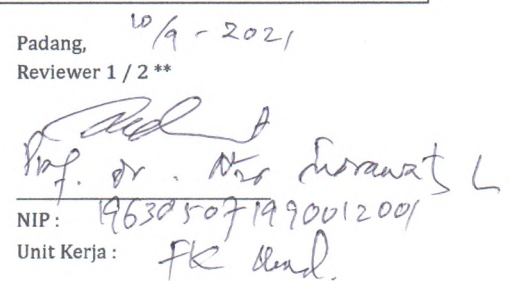 Padang, 10/9 - 2021
Reviewer 1 / 2 **
Prof. dr. Nur Indrawaty L
NIP : 196305071990012001
Unit Kerja : FK Unand.